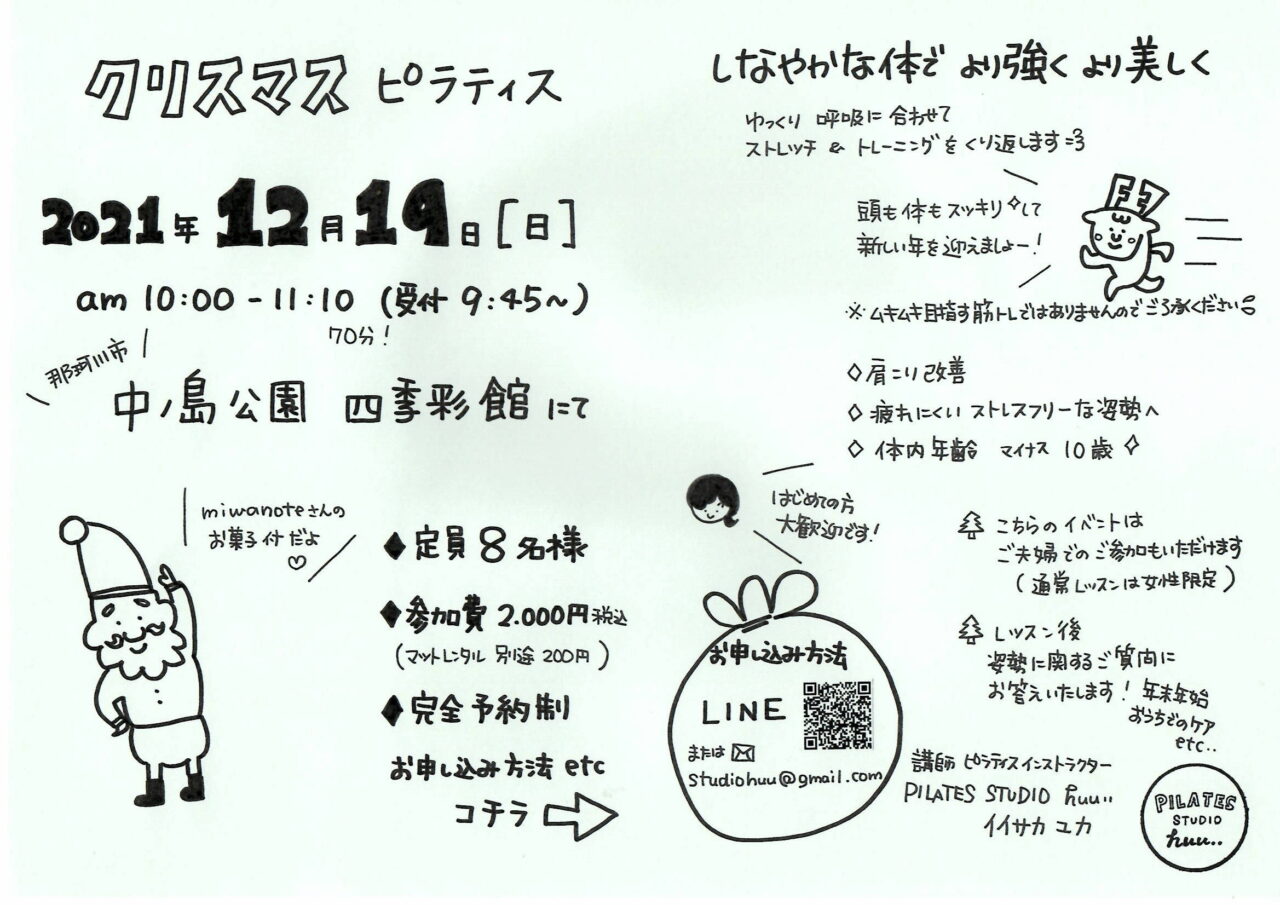 クリスマス ピラティス
2021年 12月19日[日]
am 10:00 - 11:10 (受付 9:45〜)
70分!
那珂川市
中ノ島公園 四季彩館 にて
miwanoteさんの
お菓子付だよ♡
◆定員 8名様
◆参加費 2.000円税込
(マットレンタル 別途 200円)
◆完全予約制
お申し込み方法 etc
コチラ
しなやかな体で より強く より美しく
ゆっくり 呼吸に 合わせて
ストレッチ & トレーニングをくり返します=3
頭も体もスッキリ✧して
新しい年を迎えましょー!
※ムキムキ目指す筋トレではありませんのでご了承ください
◇肩こり改善
◇疲れにくい ストレスフリーな姿勢へ
◇体内年齢 マイナス 10歳✧
はじめての方
大歓迎です!
お申し込み方法
LINE
または✉
studiohuu@gmail.com
こちらのイベントは
ご夫婦でのご参加もいただけます
(通常レッスンは女性限定)
レッスン後
姿勢に関するご質問に
お答えいたします! 年末年始
おうちでのケア
etc..
講師 ピラティスインストラクター
PILATES STUDIO huu..
イイサカ ユカ
PILATES
STUDIO
huu..